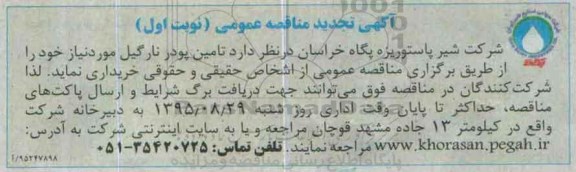 آگهی تجدید مناقصه عمومی (نوبت اول)
شرکت شیر پاستوریزه پگاه خراسان درنظر دارد تامین پودر نارگیل موردنیاز خود را
از طریق برگزاری مناقصه عمومی از اشخاص حقیقی و حقوقی خریداری نماید. لذا
شرکت‌کنندگان در مناقصه فوق می‌توانند جهت دریافت برگ شرایط و ارسال پاکت‌های
مناقصه، حداکثر تا پایان وقت اداری روز شنبه ۱۳۹۵/۰۸/۲۹ به دبیرخانه شرکت
واقع در کیلومتر ۱۳ جاده مشهد قوچان مراجعه و یا به سایت اینترنتی شرکت به آدرس:
www.khorasan.pegah.ir مراجعه نمایند. تلفن تماس: ۳۵۴۲۰۷۲۵-۰۵۱
۹۵۲۴۷۸۹۸/آ